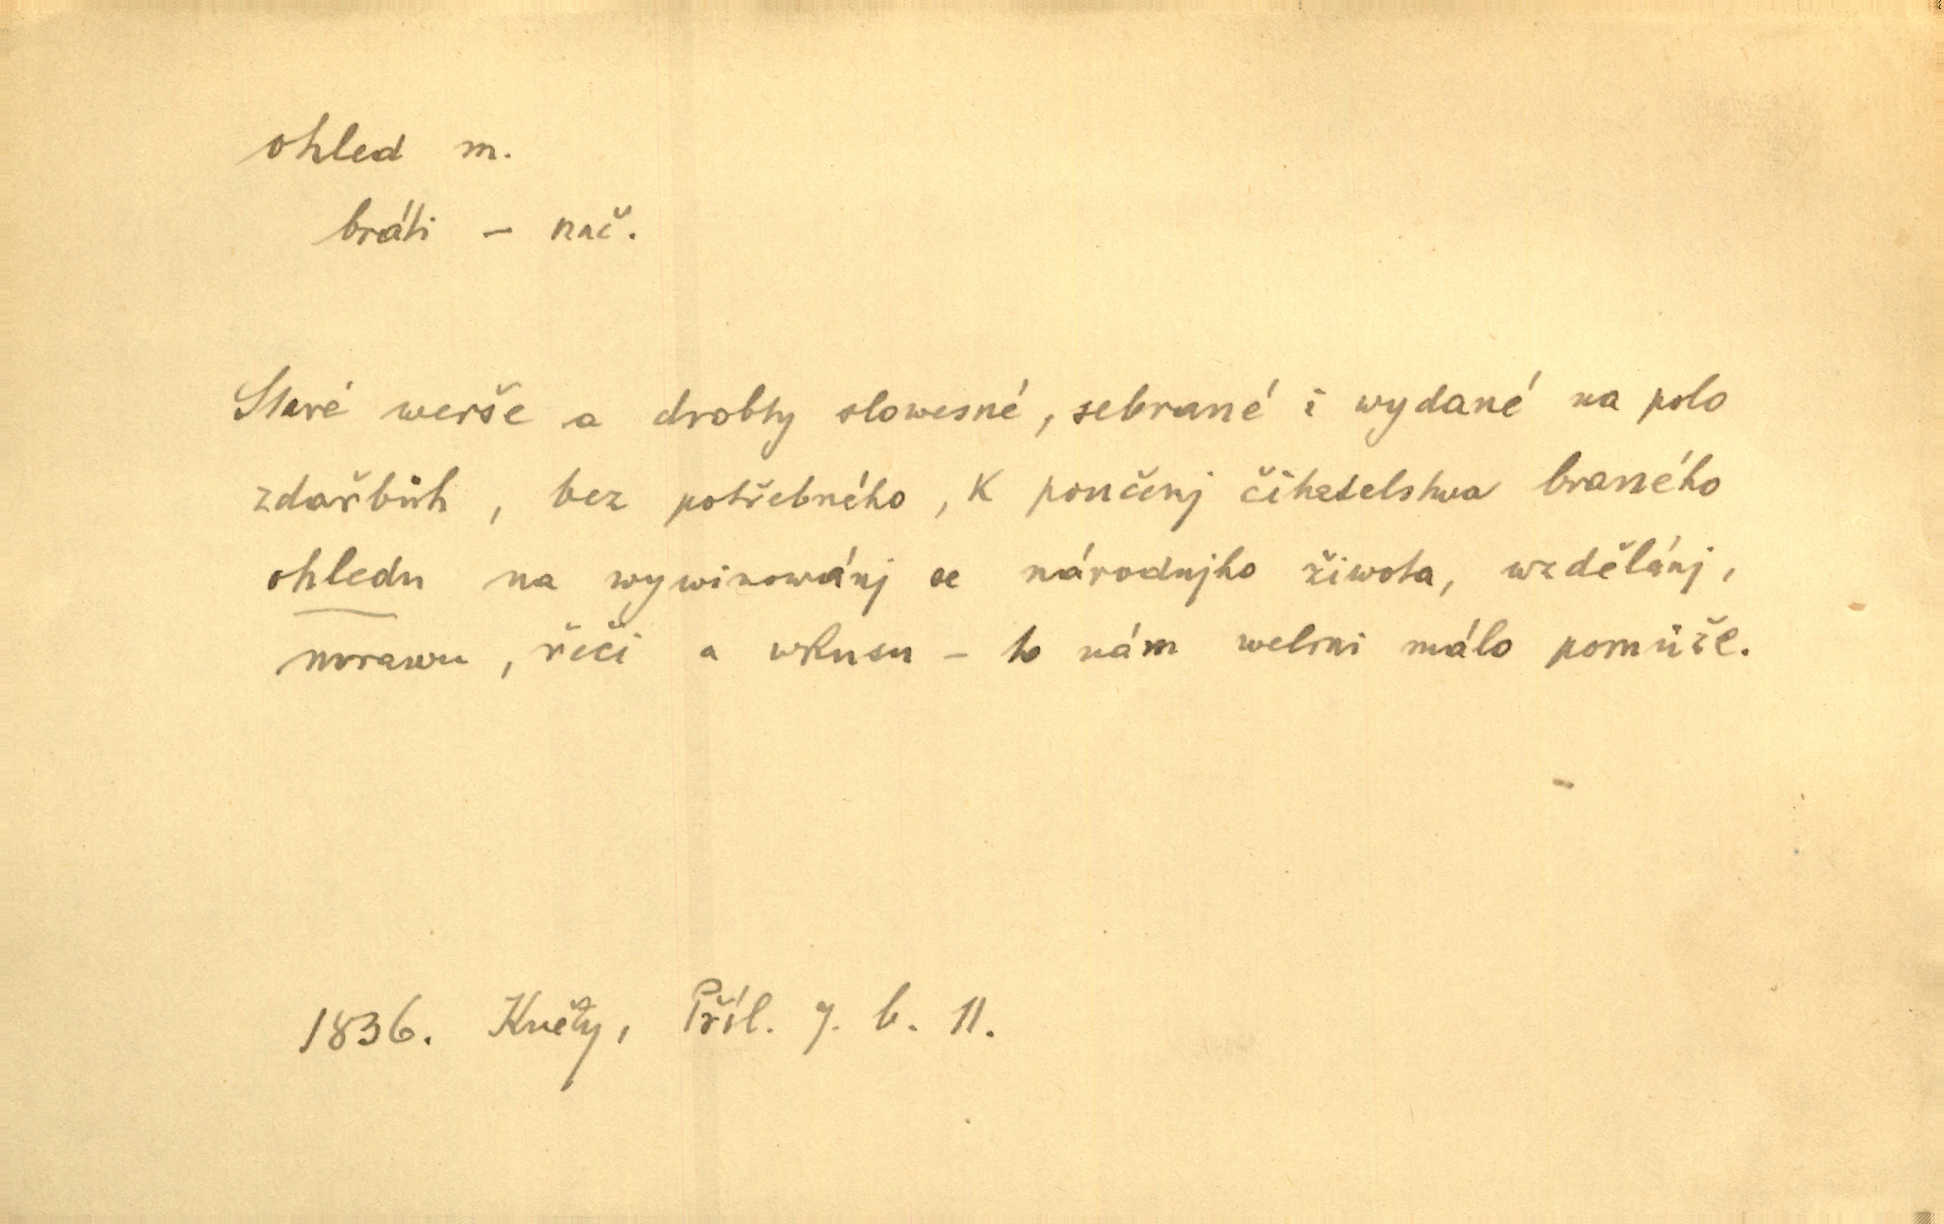 ohled m.
bráti – nač.
Staré werše a drobty slowesné, sebrané i wydané na polo
zdařbůh, bez potřebného, k poučenj čitatelstwa braného
ohledu na wywinowánj se národnjho žiwota, wzdělánj,
mrawu, řeči a wkusu – to nám welmi málo pomůže.
1836. Květy, Příl. 7. b. 11.